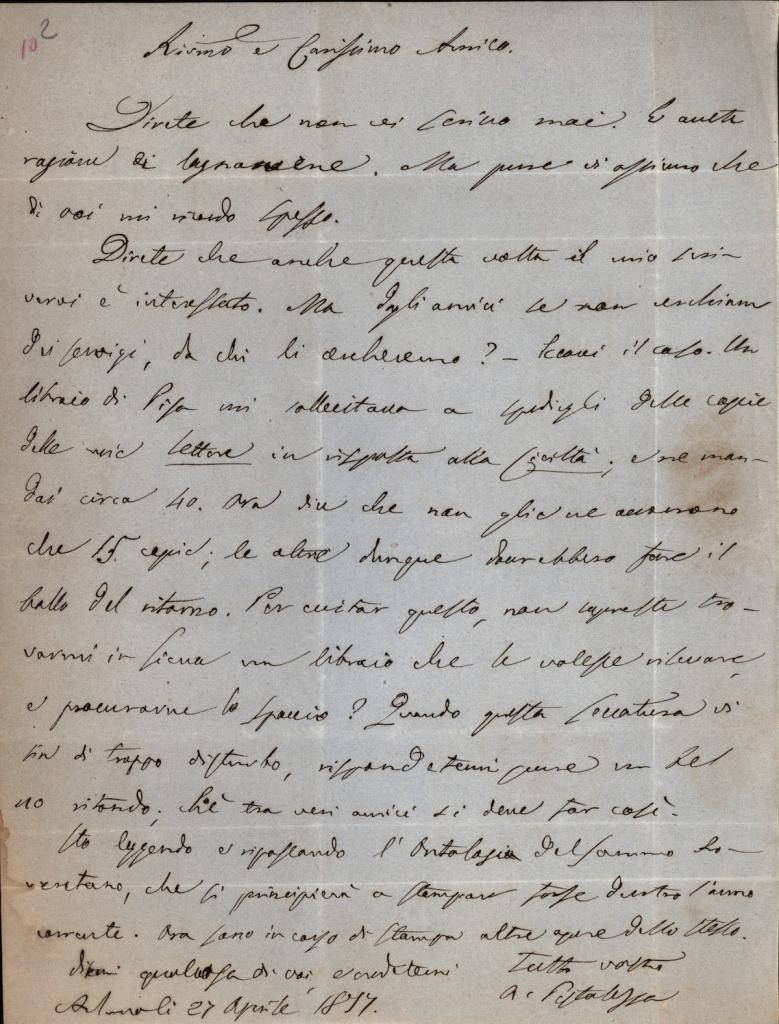 10 2
Rivmo e Carissimo Amico.
Direte che non vi scrivo mai. E avete
ragione di lagnarvene. Ma pure vi assicuro che
di voi mi ricordo spesso.
Direte che anche questa volta il mio scri-
vervi è interessato. Ma dagli amici se non cerchiam
dei servigi, da chi li cercheremo? – Eccovi il caso. Un
libraio di Pisa mi sollecitava a spedirgli delle copie
delle mie Lettere in risposta alla Civiltà; e ne man-
dai circa 40. Ora dice che non gliene
che 15 copie; le altre dunque dovrebbero fare il
ballo del ritorno. Per evitar questo, non sapreste tro-
varmi in Siena un libraio che le volesse rilevare,
e procurarne lo spaccio? Quando questa seccatura vi
sia di troppo disturbo, rispondetemi pure un bel
no ritondo; chè tra veri amici si deve far così.
Sto leggendo e ripassando l'Ontologia del sommo Ro-
veretano, che si principierà a stampare forse dentro l'anno
corrente. Ora sono in corso di stampa altre opere dello stesso.
Ditemi qualcosa di voi, e credetemi
Tutto vostro
27 Aprile 1857.
A. Pestalozza